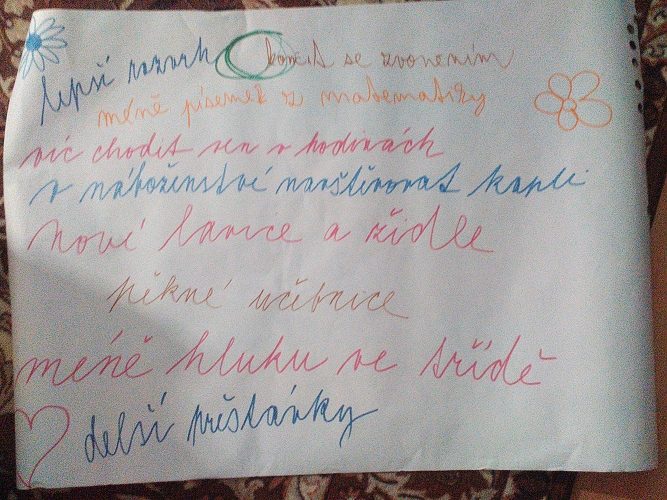 lepší rozvrh končit se zvoněním
méně písemek z matematiky
víc chodit ven v hodinách
v náboženství navštěvovat kapli
nové lavice a židle
pěkné učebnice
méně hluku ve třídě
delší přestávky